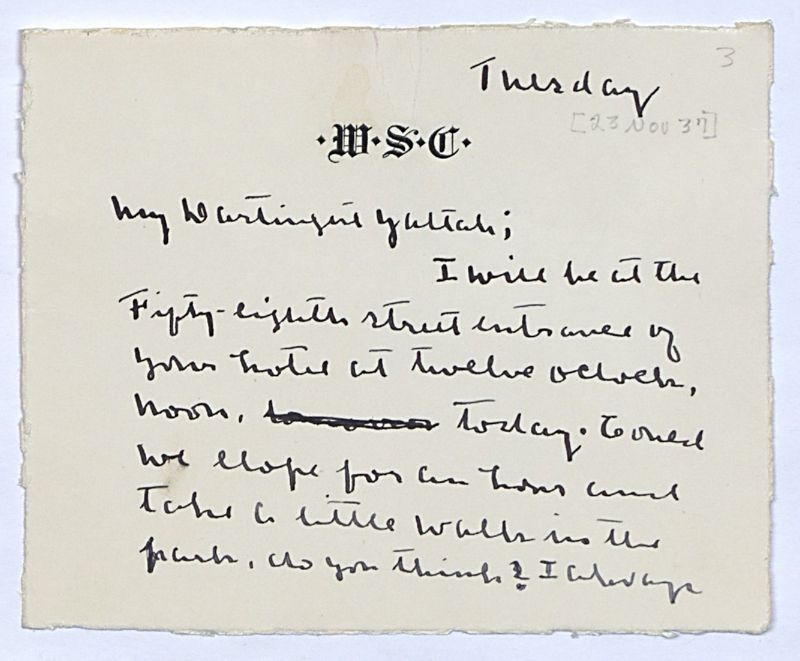 3
Tuesday
[23 Nov 37]
·W·S·C·
My
I will be at the
Fifty-eighth street entrance of
your hotel at twelve oclock,
noon, today. Could
we elope for an hour and
take a little walk in the
park, do you think? I always